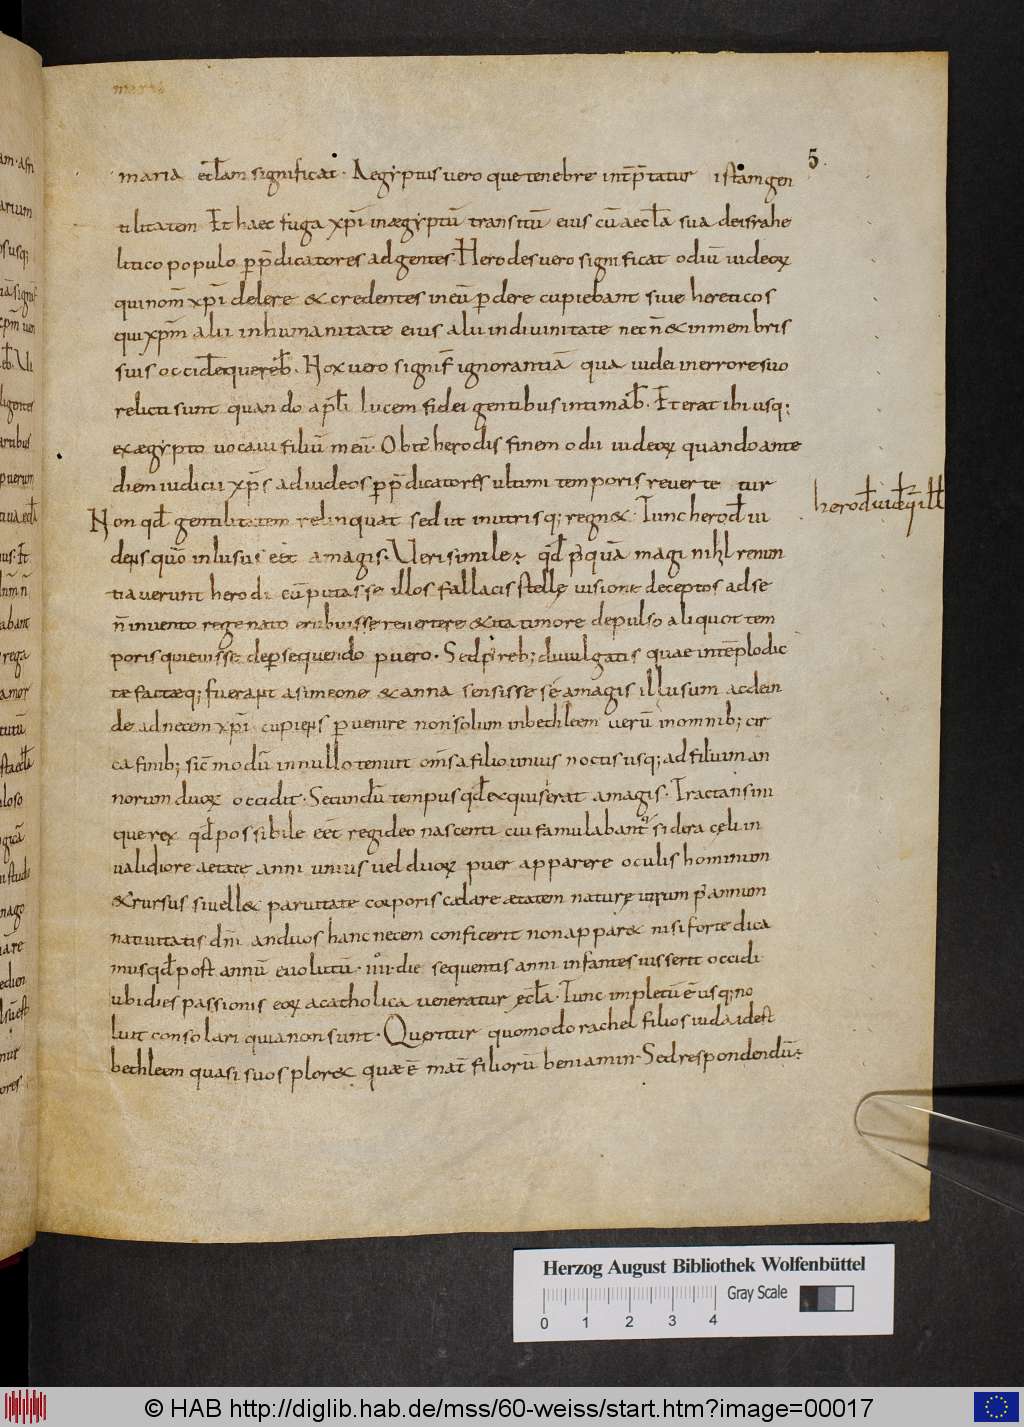 maria
5
maria ecl̄am significat. Aegyptus vero que tenebre int̄p̄tatur istam gen
tilitatem Et haec fuga xp̄i in ægyptū transitū eius cū aecl̄a sua de israhe
litico populo p p̄dicatores ad gentes. Herodes vero significat odiū iudeoꝝ
qui nom̄ xp̄i delere & credentes in eū pdere cupiebant siue hereticos
qui xp̄m alii in humanitate eius alii in diuinitate nec n̄ & in membris
suis occid̄e quereb̄. Nox vero signif̄ ignorantiā qua iudei in errore suo
relicti sunt quando ap̄l̄i lucem fidei gentibus intimab̄. Et erat ibi usq;
ex ægypto uocaui filiū meū. Obitꝰ herodis finem odii iudeoꝝ quando ante
diem iudicii xp̄s ad iudeos p p̄dicatores ultimi temporis reuerte tur
Non qd̄ gentilitatem relinquat sed ut in utrisq; regn&. Tunc herod̄ ui
dens quō inlusus eēt a magis. Uerisimile ē qd̄ p̄quā magi nihl renun
tiauerunt herodi cū putasse illos fallacis stellę uisione deceptos ad se
n̄ inuento rege nato erubuisse reuertere & ita timore depulso aliquot tem
poris quieuisse de psequendo puero. Sed p̄ reb; diuulgatis quae in tēplo dic
tæ factæq; fuerant a simeone & anna sensisse sé a magis illusum ac dein
de ad necem xp̄i cupiens puenire non solum in bethleem uerū in omnib; cir
ca finib; sic̄ modū in nullo tenuit om̄s a filio unius noctis usq; ad filium an
norum duoꝝ occidit. Secundū tempus qd̄ exquiserat a magis. Tractans ini
que rex qd̄ possibile eēt regi deo nascenti cui famulabant sidera cęli in
ualidiore aetate anni unius uel duoꝝ puer apparere oculis hominum
& rursus si uell& paruitate corporis cælare ætatem naturę utrum p̄ annum
natiuitatis dn̄i an duos hanc necem conficerit non appar& nisi forte dica
mus qd̄ post annū euolutū .iiii. die sequentis anni infantes iusserit occidi
ubi dies passionis eoꝝ a catholica ueneratur ęcl̄a. Tunc impletū ē usq; no
luit consolari quia non sunt. Queritur quomodo rachel filios iuda id est
bethleem quasi suos plor& quæ ē mat̄ filiorū beniamin. Sed respondendū ē
Herzog August Bibliothek Wolfenbüttel
Gray Scale
0 1 2 3 4
© HAB http://diglib.hab.de/mss/60-weiss/start.htm?image=00017